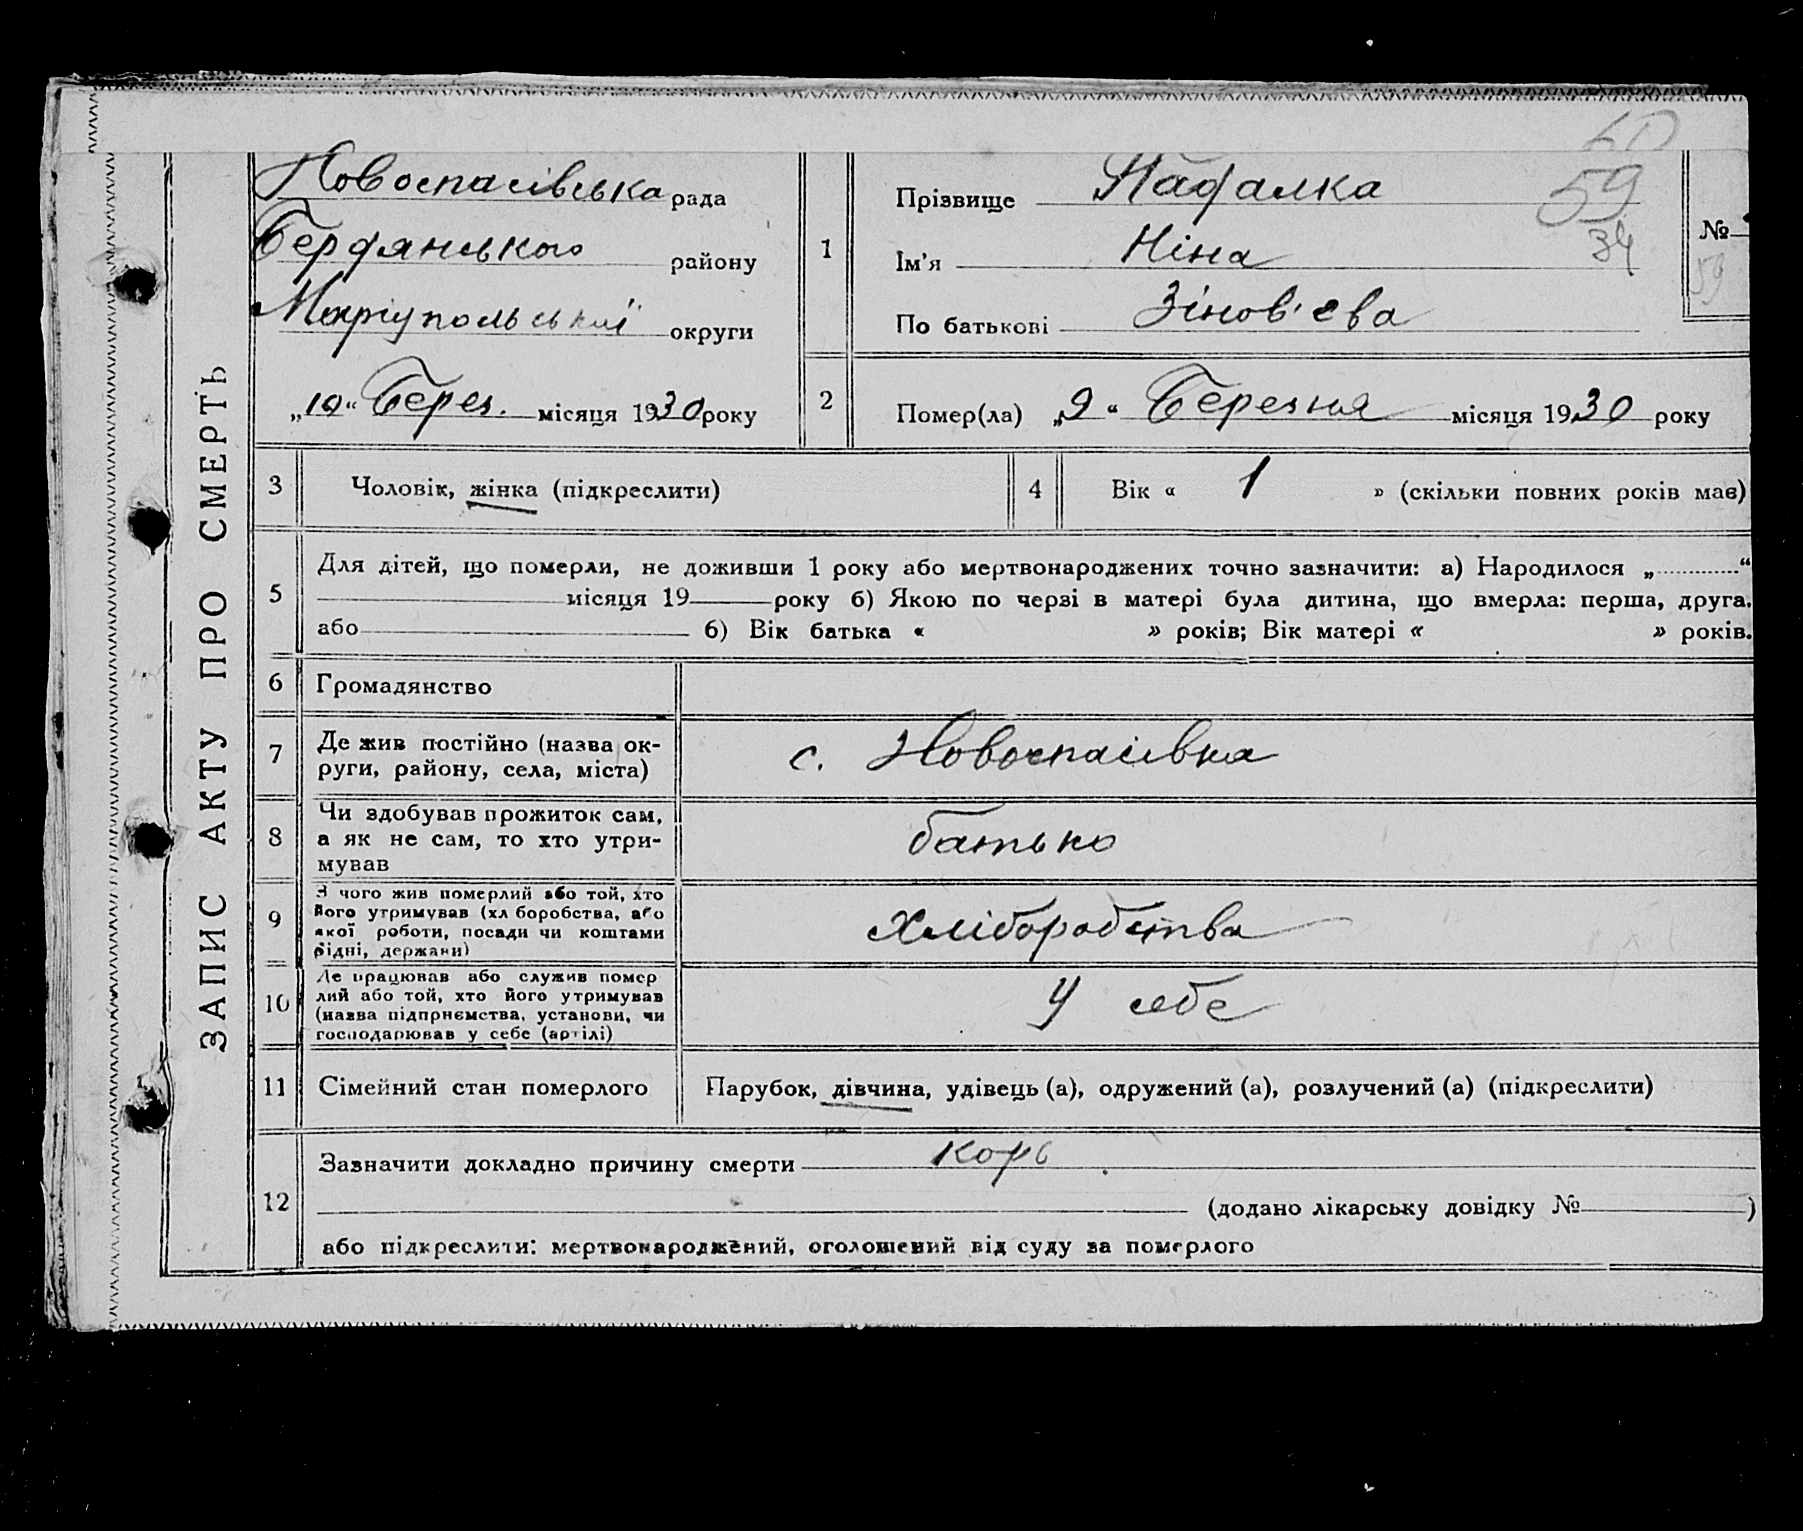 ЗАПИС АКТУ ПРО СМЕРТЬ
Новоспасівська рада
Бердянського району
Маріупольської округи
„10“ Берез. місяця 1930 року
1
Прізвище Падалка
Ім'я Ніна
По батькові Зінов'єва
59
34
№
59
2
Помер(ла) „9“ Березня місяця 1930 року
3 Чоловік, жінка (підкреслити)
4 Вік « 1 » (скільки повних років має)
5
Для дітей, що померли, не доживши 1 року або мертвонароджених точно зазначити: а) Народилося „ “
місяця 19 року б) Якою по черзі в матері була дитина, що вмерла: перша, друга,
або б) Вік батька « » років; Вік матері « » років.
6 Громадянство
7 Де жив постійно (назва ок-
руги, району, села, міста)
с. Новоспасівка
8 Чи здобував прожиток сам,
а як не сам, то хто утри-
мував
батько
9 З чого жив померлий або той, хто
його утримував (хліборобства, або
якої роботи, посади чи коштами
рідні, держави)
Хліборобства
10 Де працював або служив помер
лий або той, хто його утримував
(назва підприємства, установи, чи
господарював у себе (артілі)
У себе
11 Сімейний стан померлого
Парубок, дівчина, удівець (а), одружений (а), розлучений (а) (підкреслити)
12
Зазначити докладно причину смерти корь
(додано лікарську довідку № )
або підкреслити: мертвонароджений, оголошений від суду за померлого